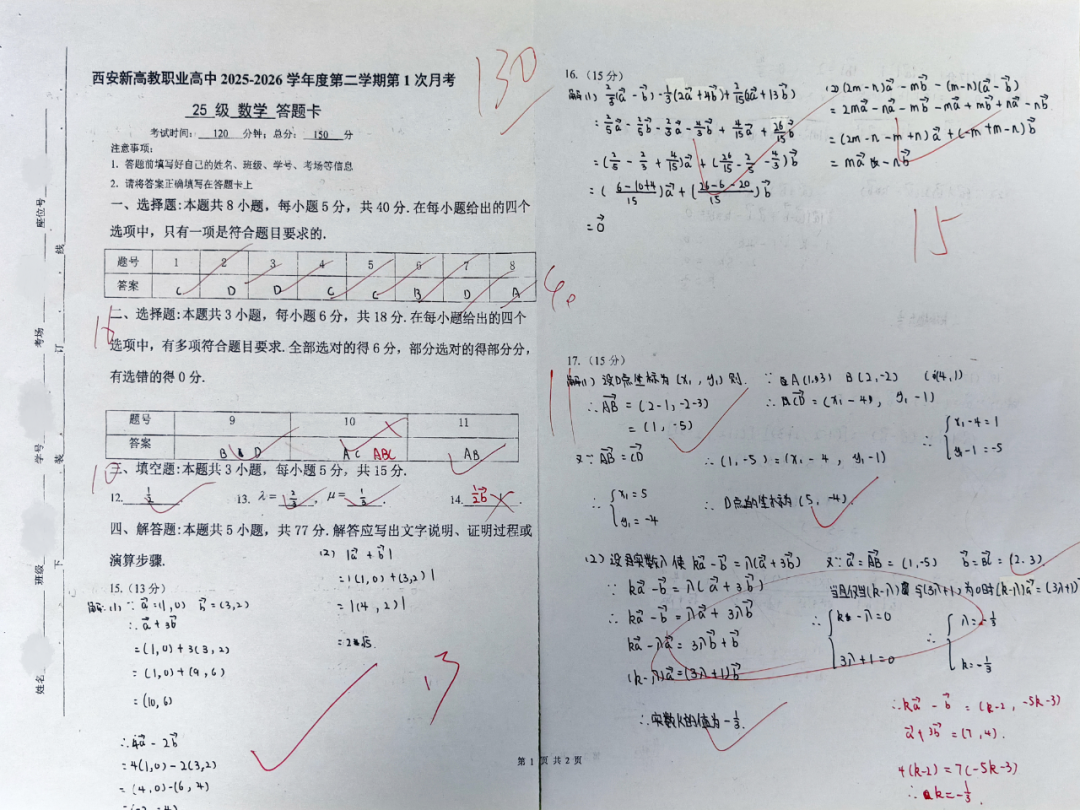 130
西安新高教职业高中 2025-2026 学年度第二学期第 1 次月考
25 级 数学 答题卡
考试时间： 120 分钟；总分： 150 分
注意事项：
1．答题前填写好自己的姓名、班级、学号、考场等信息
2．请将答案正确填写在答题卡上
一、选择题:本题共 8 小题，每小题 5 分，共 40 分.在每小题给出的四个
选项中，只有一项是符合题目要求的.
题号 1 2 3 4 5 6 7 8
答案 C D D C C B D A
40
二、选择题:本题共 3 小题，每小题 6 分，共 18 分.在每小题给出的四个
选项中，有多项符合题目要求.全部选对的得 6 分，部分选对的得部分分，
有选错的得 0 分.
题号 9 10 11
答案 B D AC ABC AB
三、填空题:本题共 3 小题，每小题 5 分，共 15 分.
10
12. 1/2 . 13. λ= 2/3 , μ= 1/3 . 14.
四、解答题:本题共 5 小题，共 77 分.解答应写出文字说明、证明过程或
演算步骤.
15.（13 分）
解:(1) ∵ a⃗=(1,0) b⃗=(3,2)
∴ a⃗+3b⃗
=(1,0)+3(3,2)
=(1,0)+(9,6)
=(10,6)
∴4a⃗-2b⃗
=4(1,0)-2(3,2)
=(4,0)-(6,4)
(2) |a⃗+b⃗|
=|(1,0)+(3,2)|
=|(4,2)|
=2√5.
13
姓名
班级
学号
考场
座位号
装
订
线
16.（15 分）
解:(1) 2/5(a⃗-b⃗)-1/3(2a⃗+4b⃗)+2/15(2a⃗+13b⃗)
=2/5a⃗-2/5b⃗-2/3a⃗-4/3b⃗+4/15a⃗+26/15b⃗
=(2/5-2/3+4/15)a⃗+(26/15-2/5-4/3)b⃗
=(6-10+4/15)a⃗+(26-6-20/15)b⃗
=0⃗
(2)(2m-n)a⃗-mb⃗-(m-n)(a⃗-b⃗)
=2ma⃗-na⃗-mb⃗-ma⃗+mb⃗+na⃗-nb⃗
=(2m-n-m+n)a⃗+(-m+m-n)b⃗
=ma⃗-nb⃗
15
17.（15 分）
11
解:(1) 设D点坐标为(x₁,y₁)则. ∵ A(1,3) B(2,-2) C(4,1)
∴AB⃗=(2-1,-2-3) ∴CD⃗=(x₁-4,y₁-1)
=(1,-5)
又∵AB⃗=CD⃗ ∴(1,-5)=(x₁-4,y₁-1) ∴{x₁-4=1 y₁-1=-5
∴{x₁=5 y₁=-4 ∴D点的坐标为(5,-4).
(2)设实数λ使 ka⃗-b⃗=λ(a⃗+3b⃗) 又∵a⃗=AB⃗=(1,-5) b⃗=BC⃗=(2,3)
∵ka⃗-b⃗=λ(a⃗+3b⃗) 当且仅当(k-λ)与(3λ+1)为0时(k-λ)a⃗=(3λ+1)
∴ka⃗-b⃗=λa⃗+3λb⃗ ∴{k-λ=0 3λ+1=0 ∴{λ=-1/3 k=-1/3
ka⃗-λa⃗=3λb⃗+b⃗
(k-λ)a⃗=(3λ+1)b⃗
∴实数k的值为-1/3.
∴ka⃗-b⃗=(k-2,-5k-3)
a⃗+3b⃗=(7,4).
4(k-2)=7(-5k-3)
∴k=-1/3.
第 1 页 共 2 页